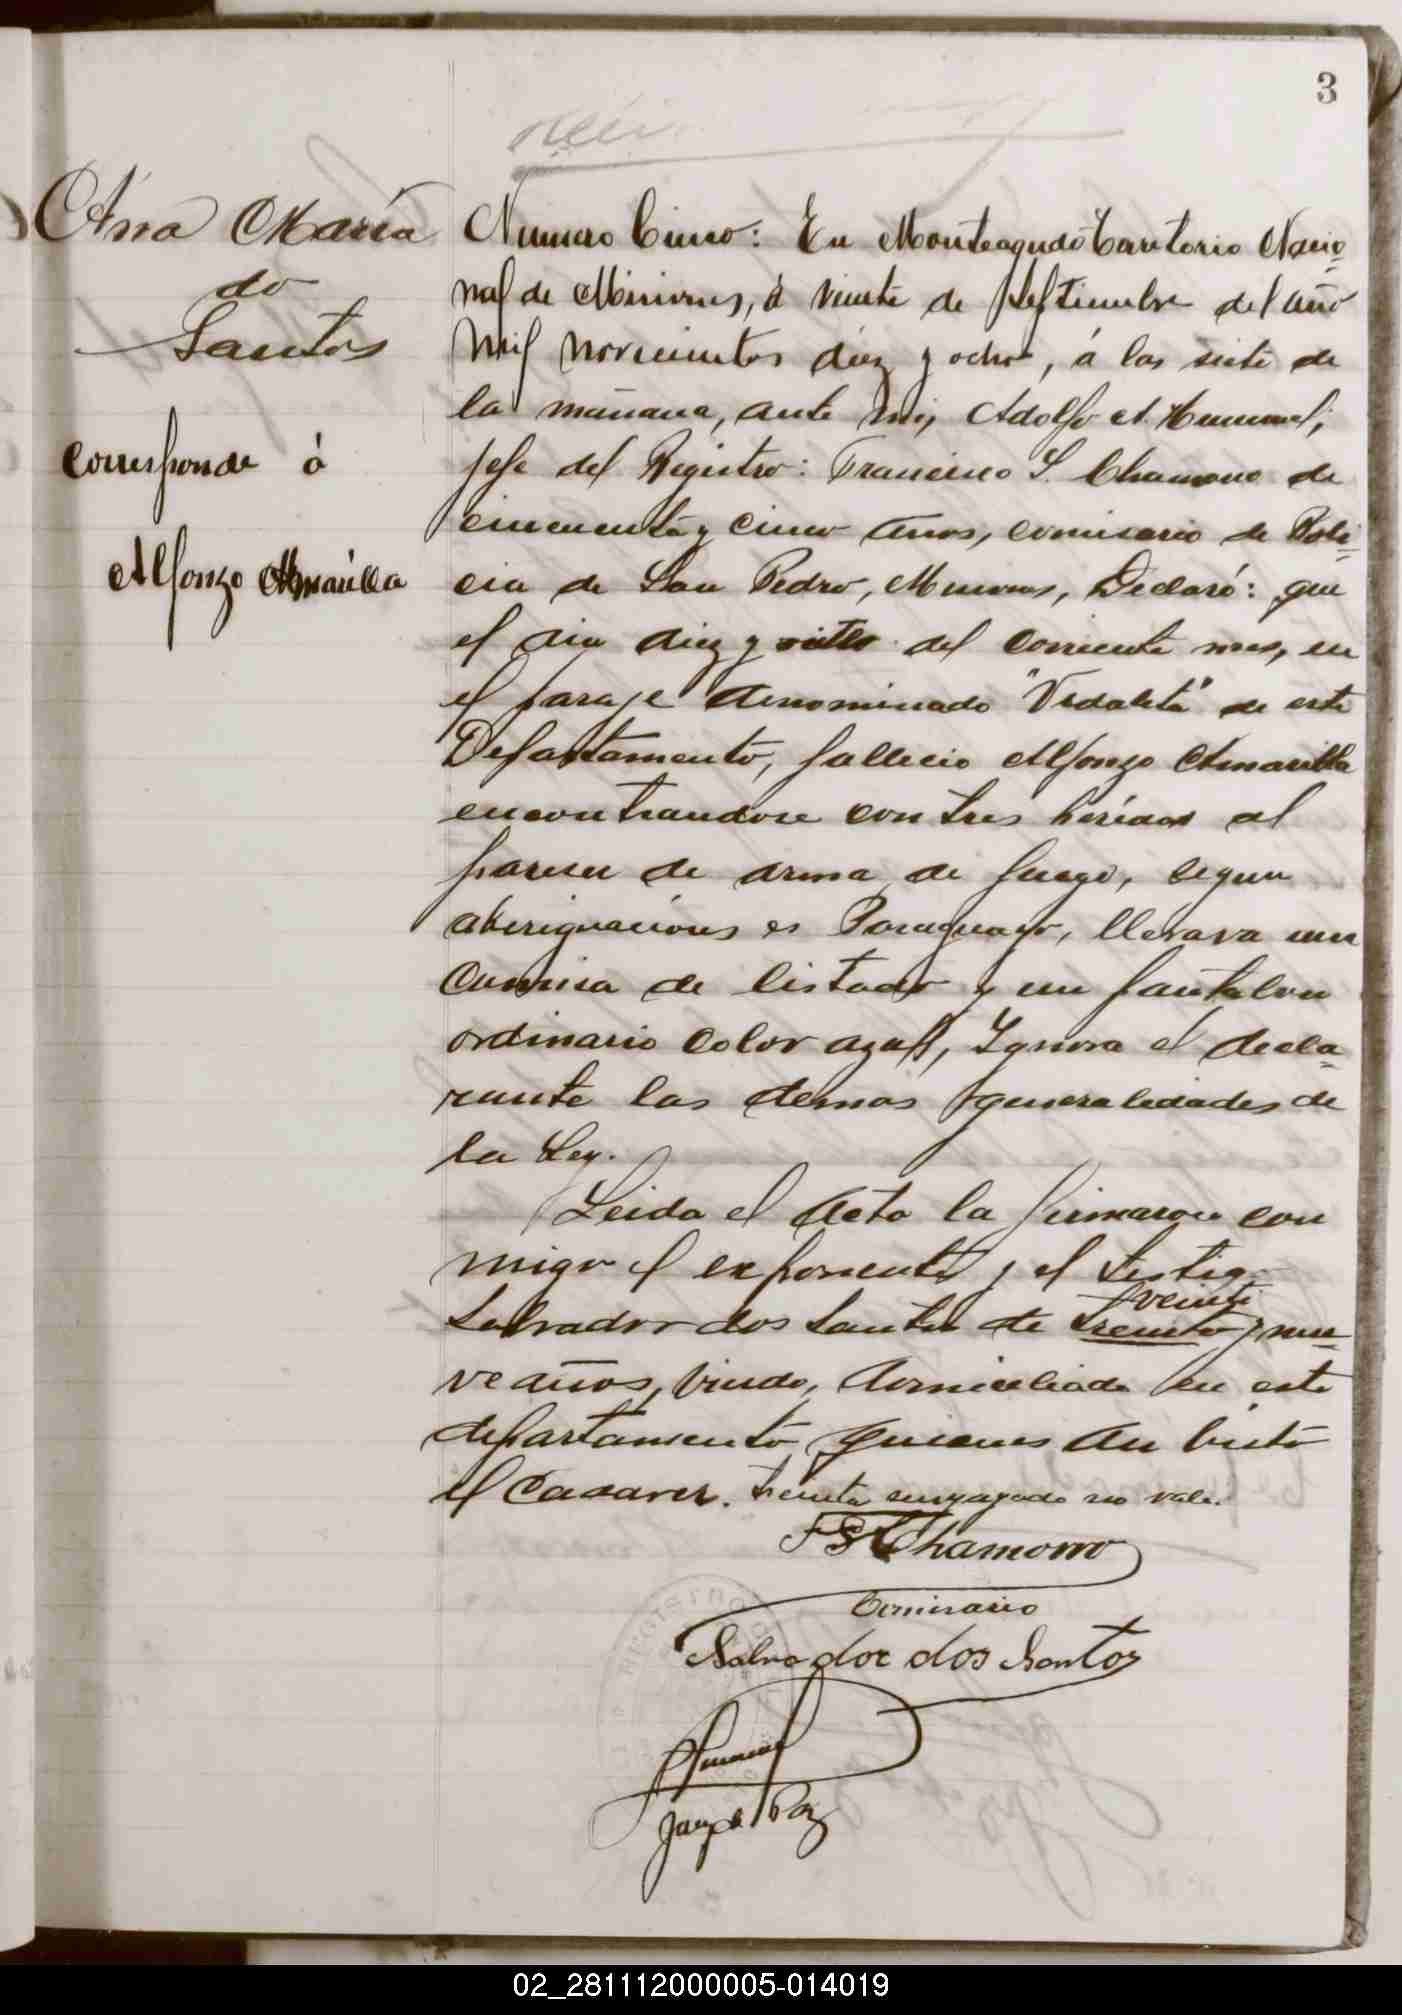 3
Ana María
do
Santos
Corresponde á
Alfonzo Amarilla
Numero Cinco: En Monteagudo Territorio Nacio=
nal de Misiones, á veinte de Septiembre del año
mil novecientos diez y ocho, á las siete de
la mañana, ante mi, Adolfo A.
jefe del Registro: Francisco S. Chamorro de
cincuenta y cinco años, comisario de Poli=
cia de San Pedro, Misiones, Declaró: que
el dia diez y siete del corriente mes, en
el paraje denominado "Vidalita" de este
Departamento, fallecio Alfonzo Amarilla
encontrandose con tres heridas al
pareser de arma de fuego, segun
aberiguacions es Paraguayo, llevava una
Camisa de listado y un pantalon
ordinario color azul, Ygnora el decla=
rante las demas generalidades de
la Ley.
Leida el Acta la firmaron con
migo el exponente y el testigo
Salvador dos Santos de treinta veinte y nue=
ve años, viudo, domiciliado en este
departamento quienes an visto
el Cadaver. treinta enrayado no vale.
F S Chamorro
Comisario
Salvador dos Santos